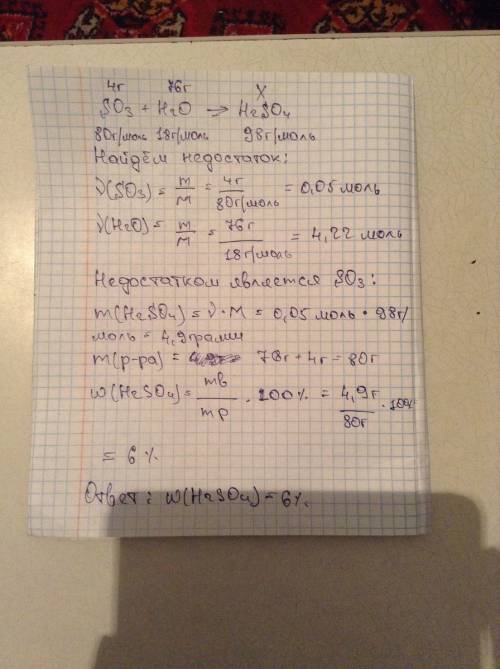 4г 76г X
SO3 + H2O → H2SO4
80г/моль 18г/моль 98г/моль
Найдём недостаток:
ν(SO3) = m/M = 4г/80г/моль = 0,05 моль
ν(H2O) = m/M = 76г/18г/моль = 4,22 моль
Недостатком является SO3:
m(H2SO4) = ν · M = 0,05 моль · 98г/
моль = 4,9грамм
m(р-ра) = 76г + 4г = 80г
w(H2SO4) = mв/mр · 100% = 4,9г/80г · 100%
= 6%
Ответ: w(H2SO4) = 6%